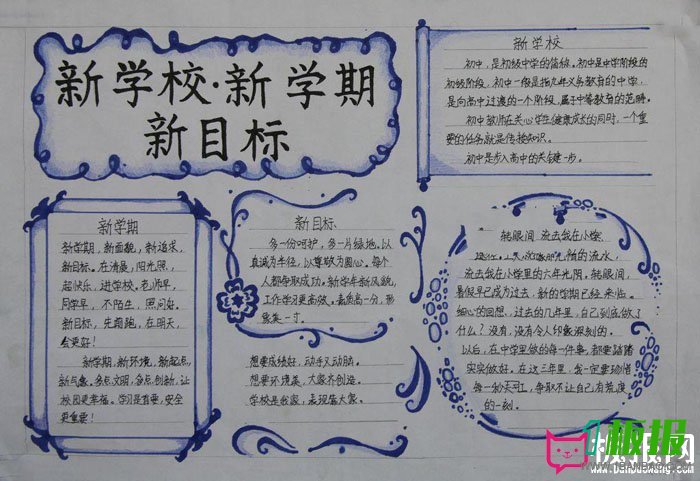 新学校·新学期
新目标
新学校
初中，是初级中学的简称。初中是中学阶段的
初级阶段，初中一般是指九年义务教育的中学，
是向高中过渡的一个阶段，属于中等教育的范畴。
初中教师在关心学生健康成长的同时，一个重
要的任务就是传授知识。
初中是步入高中的关键一步。
新学期
新学期，新面貌，新追求，
新目标。在清晨，阳光照，
超快乐，进学校。老师早，
同学早，不陌生，照问好。
新目标，先翱跑，在明天，
会更好！
新学期，新环境，新起点，
新气象。多点文明，多点创新，让
校园更幸福。学习是首要，安全
更重要！
新目标
多一份呵护，多一片绿地。以
真诚为半径，以尊敬为圆心。每个
人都争取成功。新学年新风貌，
工作学习更高效。素质高一分，形
象美一寸。
想要成绩好，动手又动脑。
想要环境美，大家齐创造。
学校是我家，表现靠大家。
转眼间 流去我在小学
的流水，
流去我在小学里的六年光阴。转眼间，
暑假早已成为过去，新的学期已经来临。
细心的回想，过去的几年里，自己到底做了
什么？没有，没有令人印象深刻的。
以后，在中学里做的每一件事，都要踏踏
实实做好。在这三年里，我一定要珍惜
每一秒，争取不让自己有荒废
的一刻。
板报
www.banbaowang.com